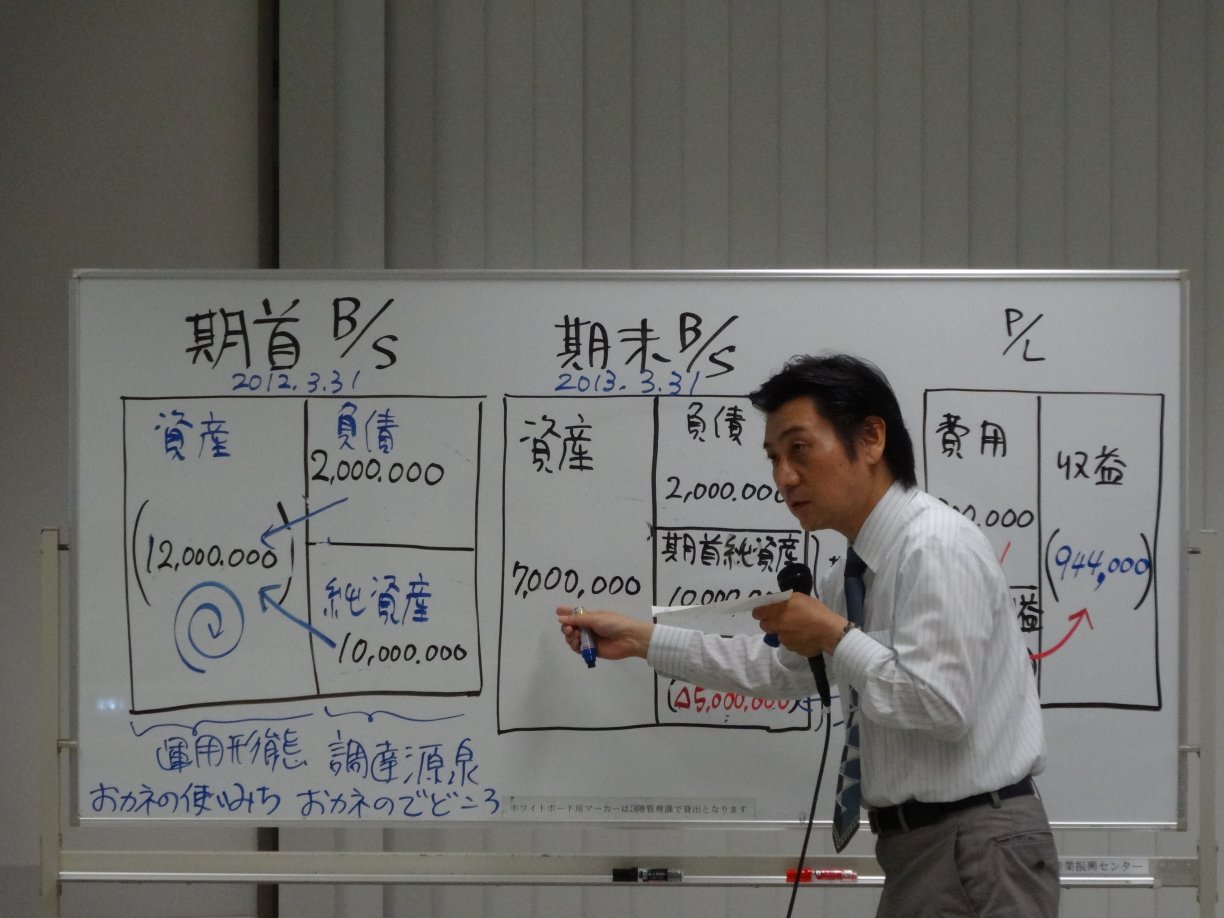 期首 B/S
2012.3.31
資産
(12,000.000)
負債
2,000.000
純資産
10,000.000
運用形態
おカネの使いみち
調達源泉
おカネのでどころ
期末 B/S
2013.3.31
資産
7,000,000
負債
2,000.000
期首純資産
10,000.00
(△5,000,000
P/L
費用
00.000
益
収益
(944,000)
ホワイトボード用マーカーは3階管理課で貸出となります
業振興センター